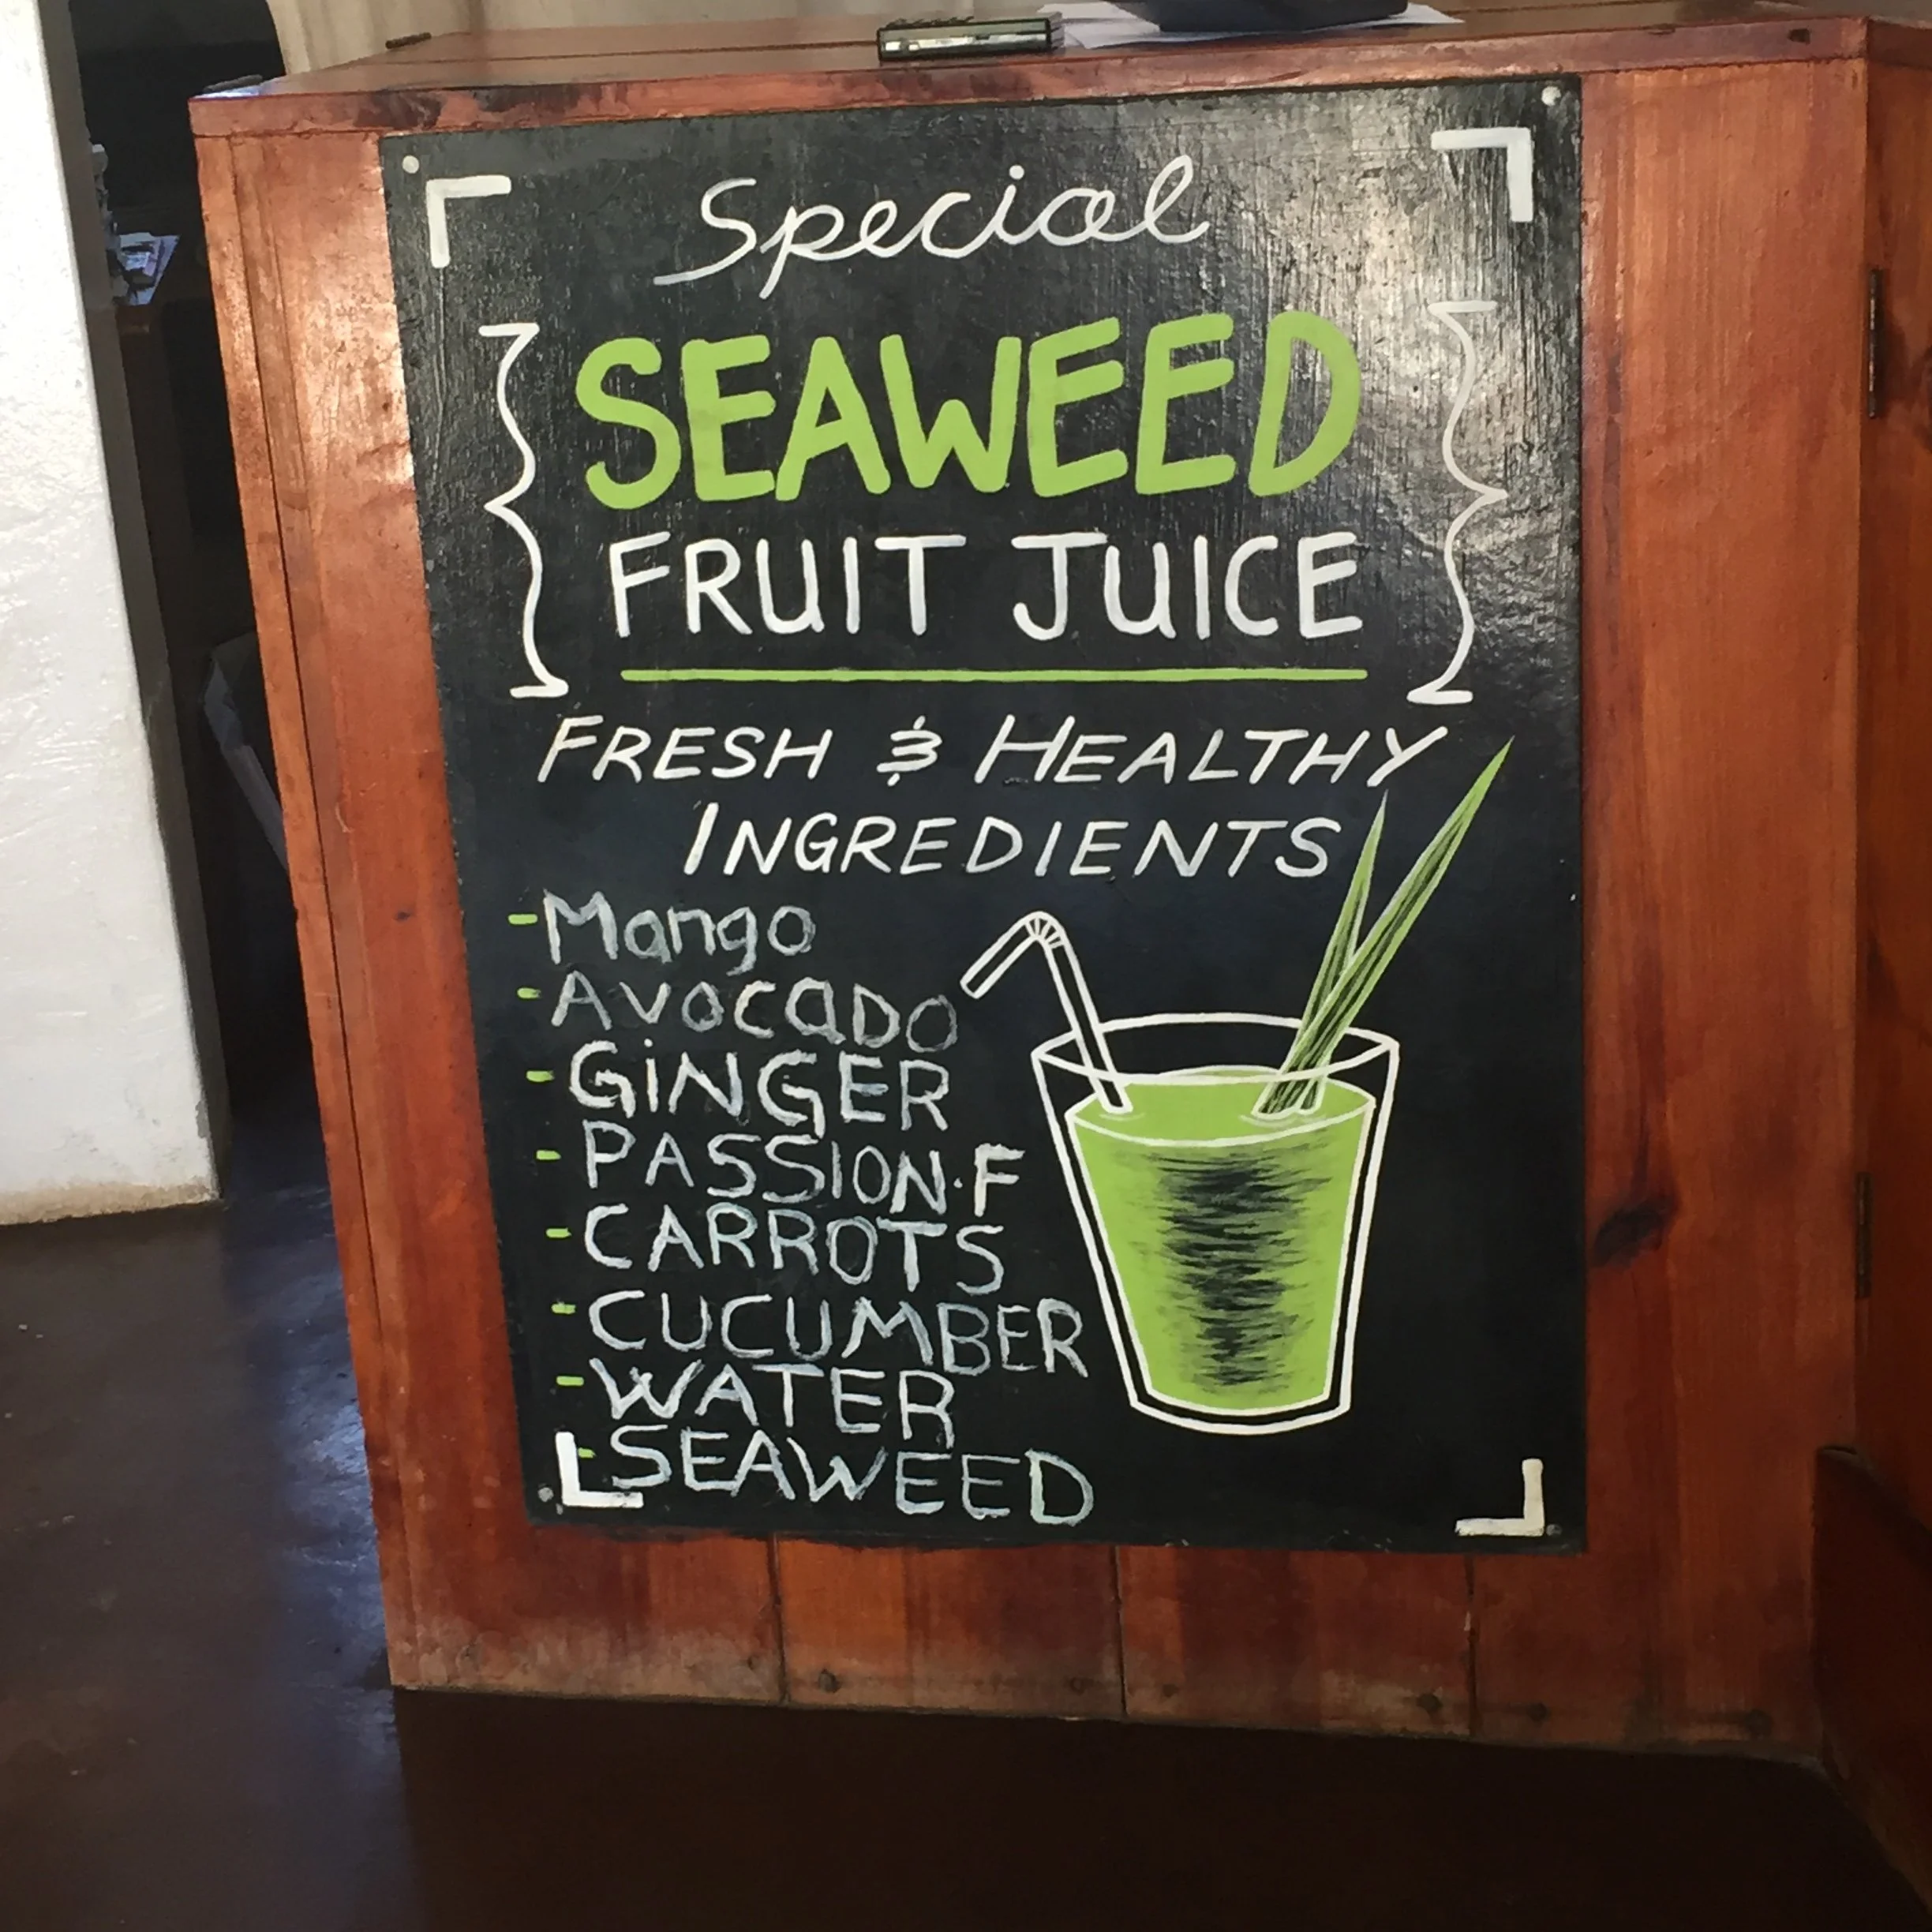 Special
SEAWEED
FRUIT JUICE
FRESH & HEALTHY
INGREDIENTS
- Mango
- AvocaDO
- GiNGER
- PASSION.F
- CARROTS
- CUCUMBER
- WATER
- SEAWEED